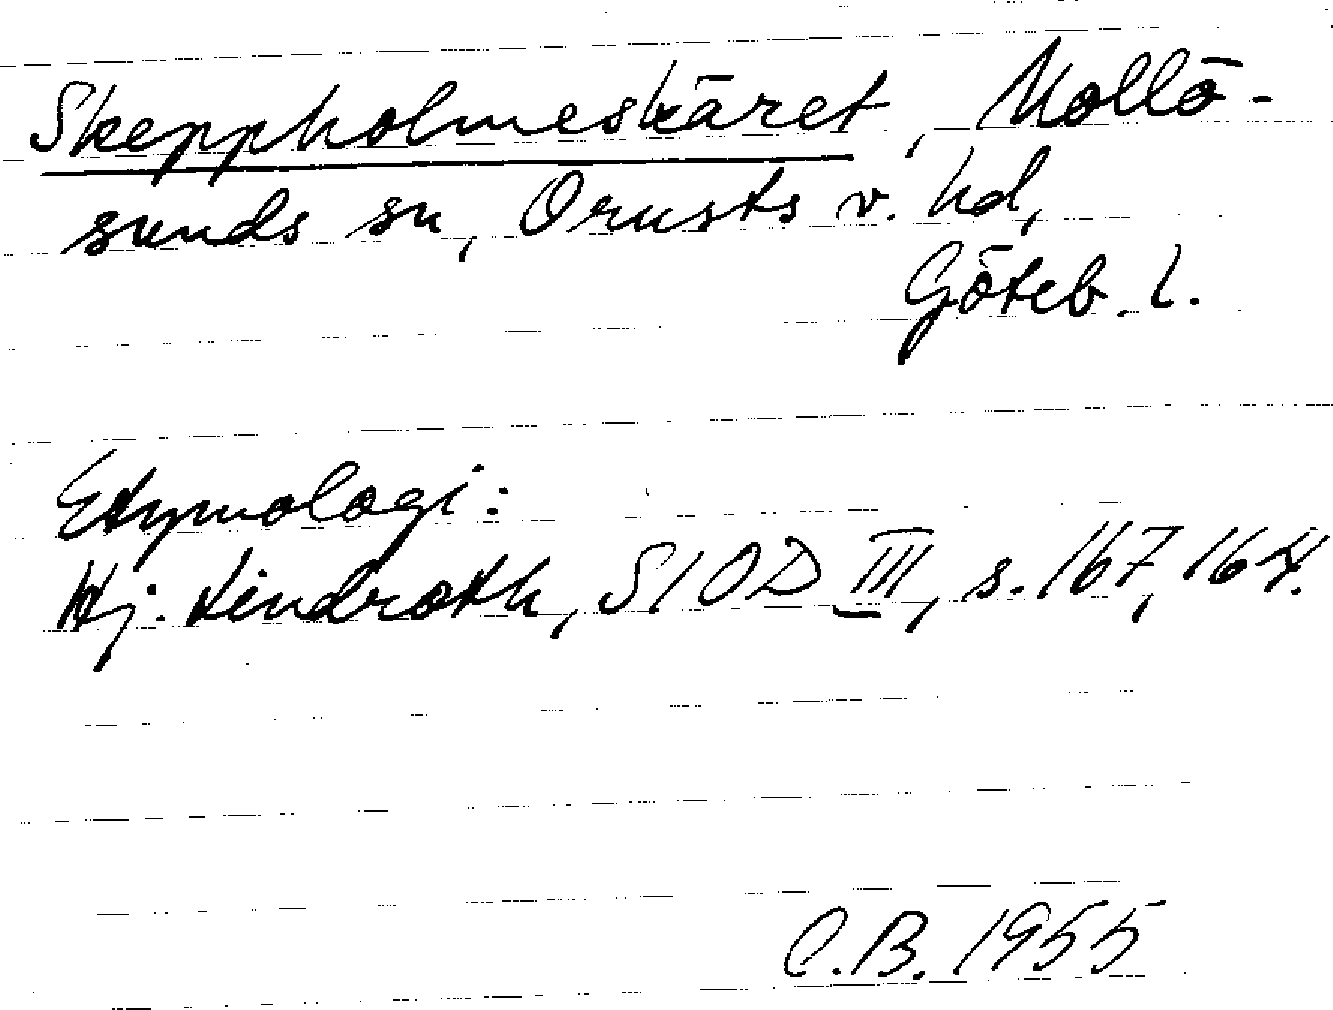 Skeppholmeskäret, Mollö-
sunds sn, Orusts v. hd,
Göteb. l.
Etymologi:
Hj. Lindroth, SIOD III, s. 167, 164.
C.B. 1955